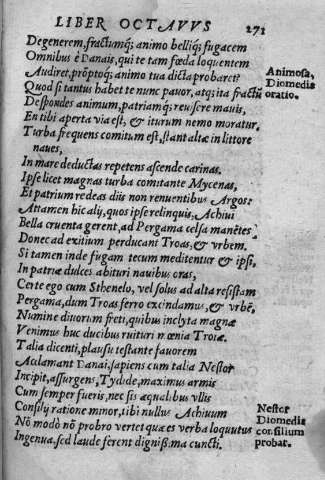 LIBER OCTAVVS 271
Degenerem, fractumq; animo belliq; fugacem
Omnibus è Danais, qui te tam fœda loquentem
Audiret, prōptoq; animo tua dicta probaret?
Animosa,
Diomedis
oratio.
Quod si tantus habet te nunc pauor, atq; ita fractū
Despondes animum, patriamq; reuisere mauis,
En tibi aperta via est, & iturum nemo moratur.
Turba frequens comitum est, stant altæ in littore
naues,
In mare deductas repetens ascende carinas.
Ipse licet magnas turba comitante Mycenas,
Et patrium redeas diis non renuentibus Argos:
Attamen hic alij, quos ipse relinquis, Achiui
Bella cruenta gerent, ad Pergama celsa manētes
Donec ad exitium perducant Troas, & vrbem.
Si tamen inde fugam tecum meditentur & ipsi,
In patriæ dulces abituri nauibus oras,
Certe ego cum Sthenelo, vel solus ad alta resistam
Pergama, dum Troas ferro excindamus, & vrbē,
Numine diuorum freti, quibus inclyta magnæ
Venimus huc ducibus ruituri mœnia Troiæ.
Talia dicenti, plausu testante fauorem
Acclamant Danai, sapiens cum talia Nestor
Incipit, assurgens, Tydide, maximus armis
Cum semper fueris, nec sis æqualibus vllis
Consilij ratione minor, tibi nullus Achiuum
No modò nō probro vertet quæ es verba loquutus
Ingenua, sed laude ferent digniss. ma cuncti.
Nestor
Diomedis
consilium
probat.